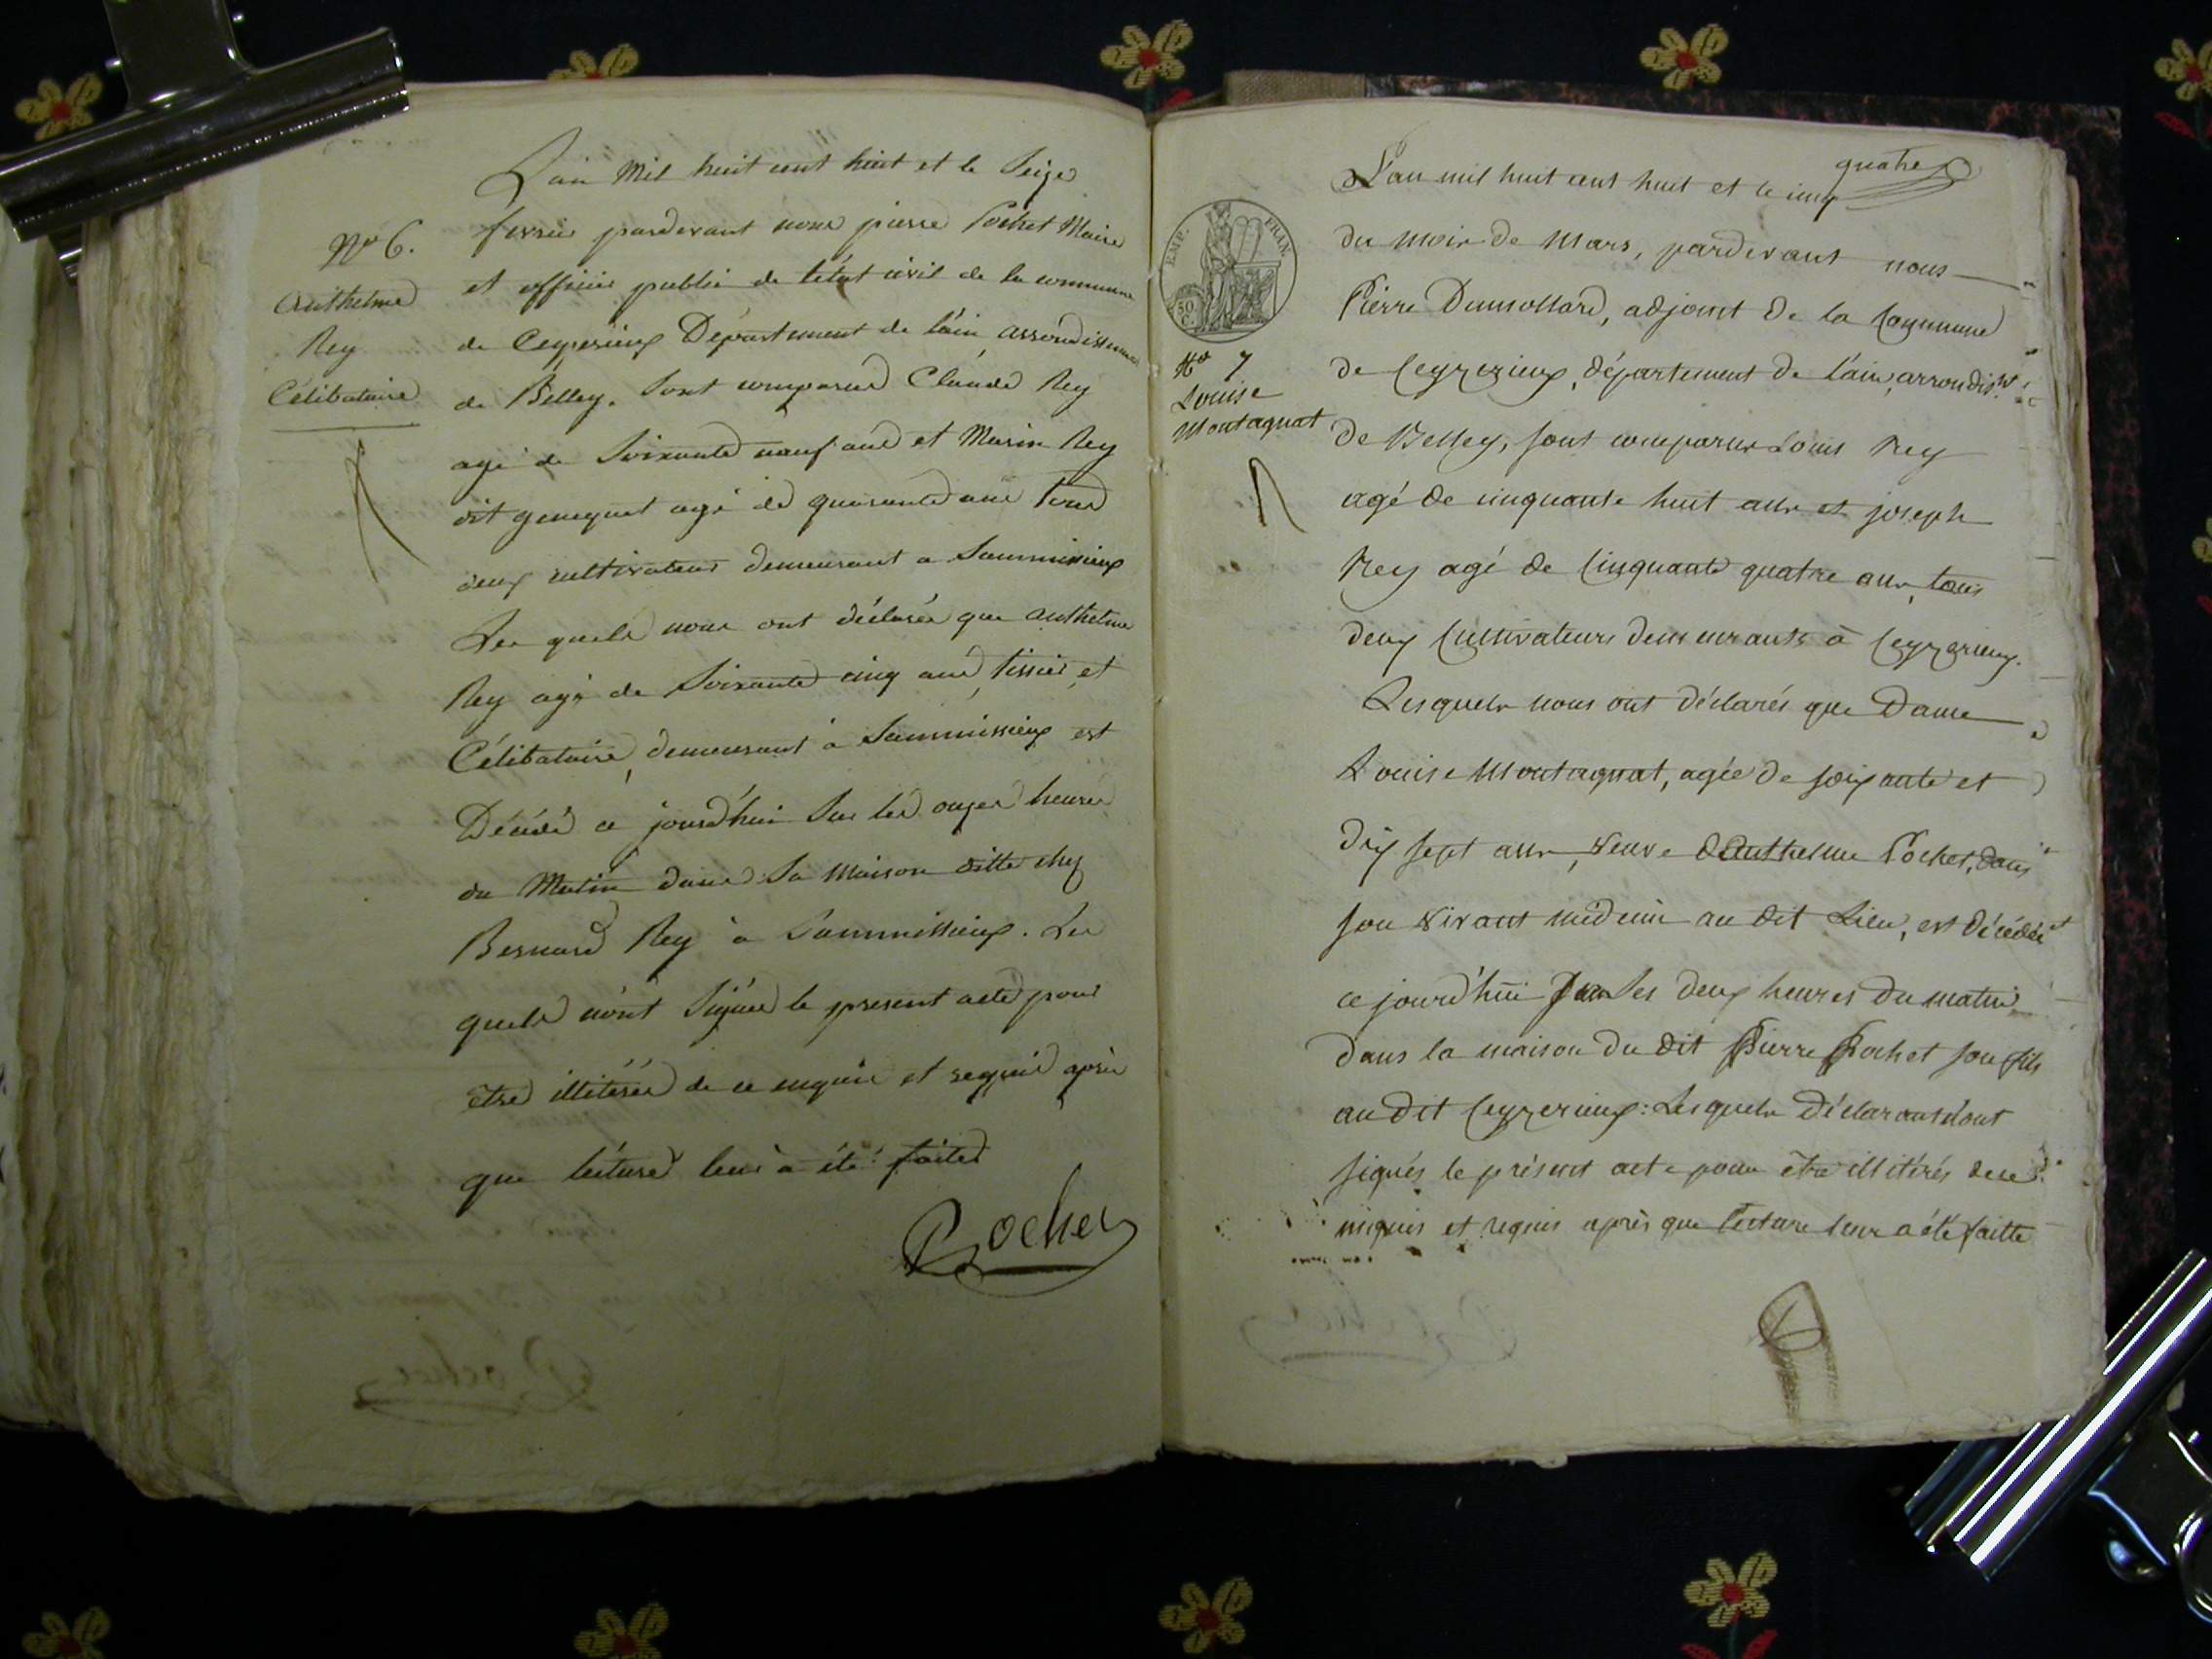 L'an Mil huit cent huit et le Seize
fevrier pardevant nous pierre Pochet Maire
et officier public de l'état civil de la commune
de Ceyzerieux Département de l'ain arrondissement
de Belley. Sont comparus Claude Rey
agé de Soixante neuf ans et Marin Rey
dit genequet agé de quarante ans tous
deux cultivateurs demeurant a Sammissieux
Les quels nous ont déclarés que anthelme
Rey agé de Soixante cinq ans, tissier, et
Célibataire, demeurant à Sammissieux est
Décédé ce jourd'hui Sur les onzes heures
du Matin dans Sa Maison ditte chez
Bernard Rey à Sammissieux. Les
quels n'ont Signés le present acte pour
etre illitérés de ce enquis et requis après
que lecture leur a été faite
Pochet
N° 6.
Anthelme
Rey
Célibataire
EMP. FRAN.
50 C.
N° 7
Louise
Montagnat
L'an mil huit cent huit et le cinq quatre
du mois de Mars, pardevant nous
Pierre Dumollard, adjoint de la Commune
de Ceyzerieux, département de l'ain, arrondisst
de Belley, sont comparus Louis Rey
agé de cinquante huit ans et joseph
Rey agé de Cinquante quatre ans, tous
deux Cultivateurs demeurants à Ceyzerieux.
Lesquels nous ont déclarés que Dame
Louise Montagnat, agée de soixante et
dix sept ans, veuve d'Anthelme Pochet, dans
son vivant médecin au dit Lieu, est décédée
ce jourd'hui Sur les deux heures du matin
dans la maison du dit Pierre Pochet son fils
au dit Ceyzerieux: Lesquels déclarants n'ont
signés le présent acte pour être illitérés de ce
enquis et requis après que lecture leur a été faitte